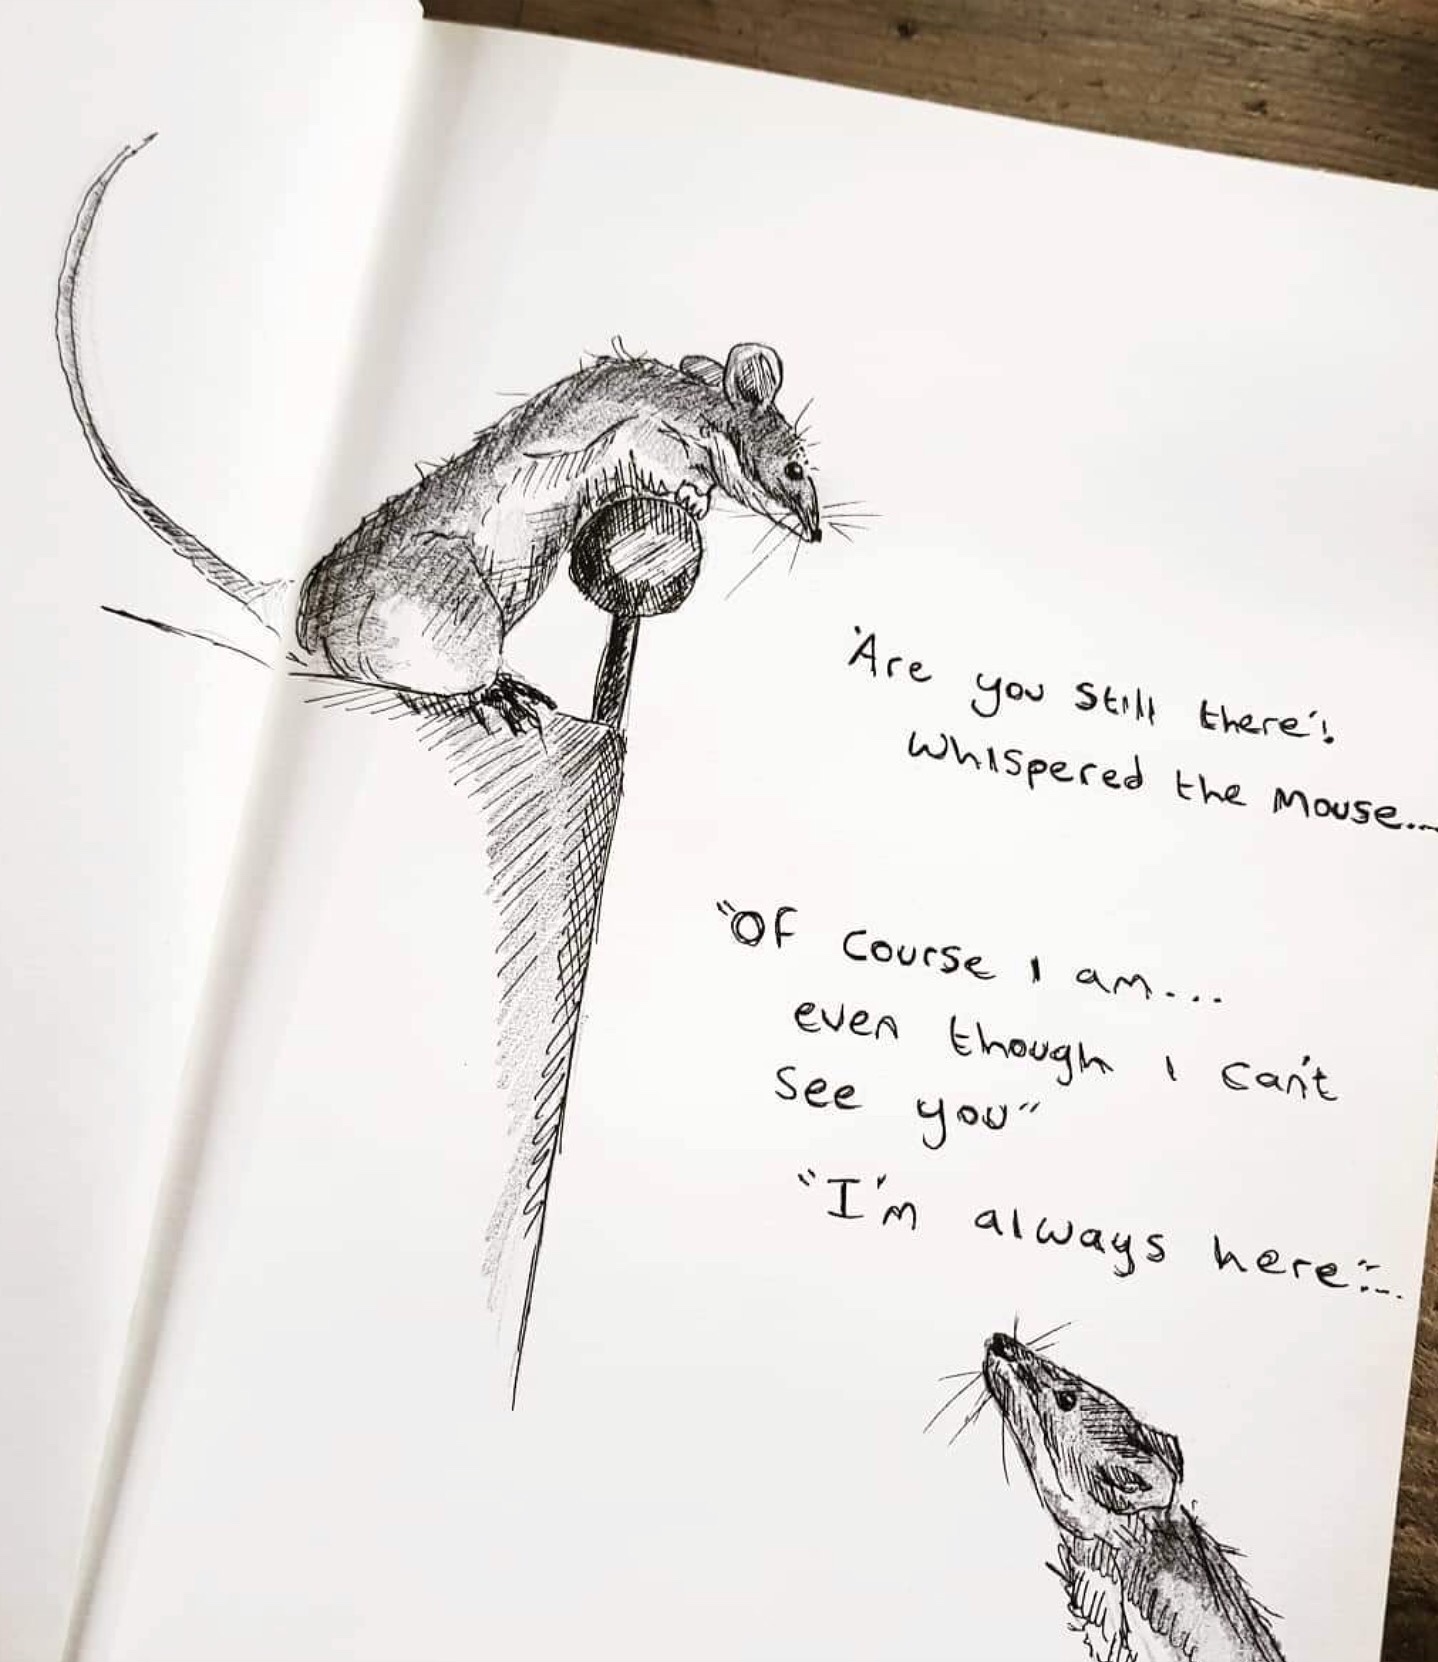 'Are you still there'!
whispered the Mouse...
"Of course I am...
even though I can't
see you"
"I'm always here"...